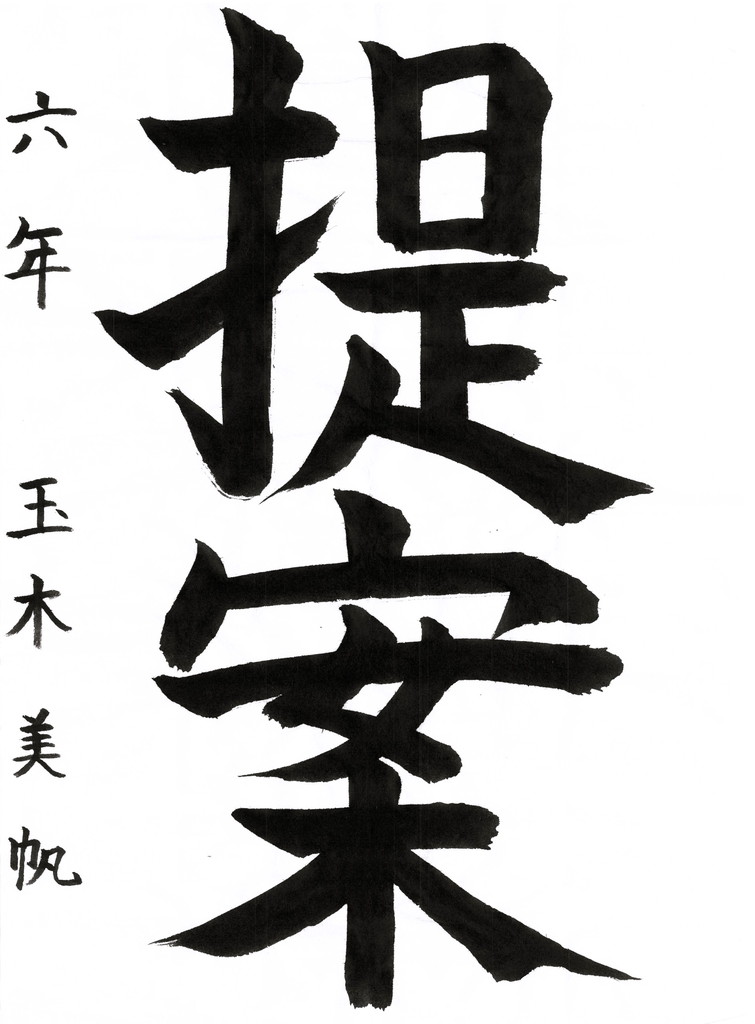 提案
六年 玉木美帆